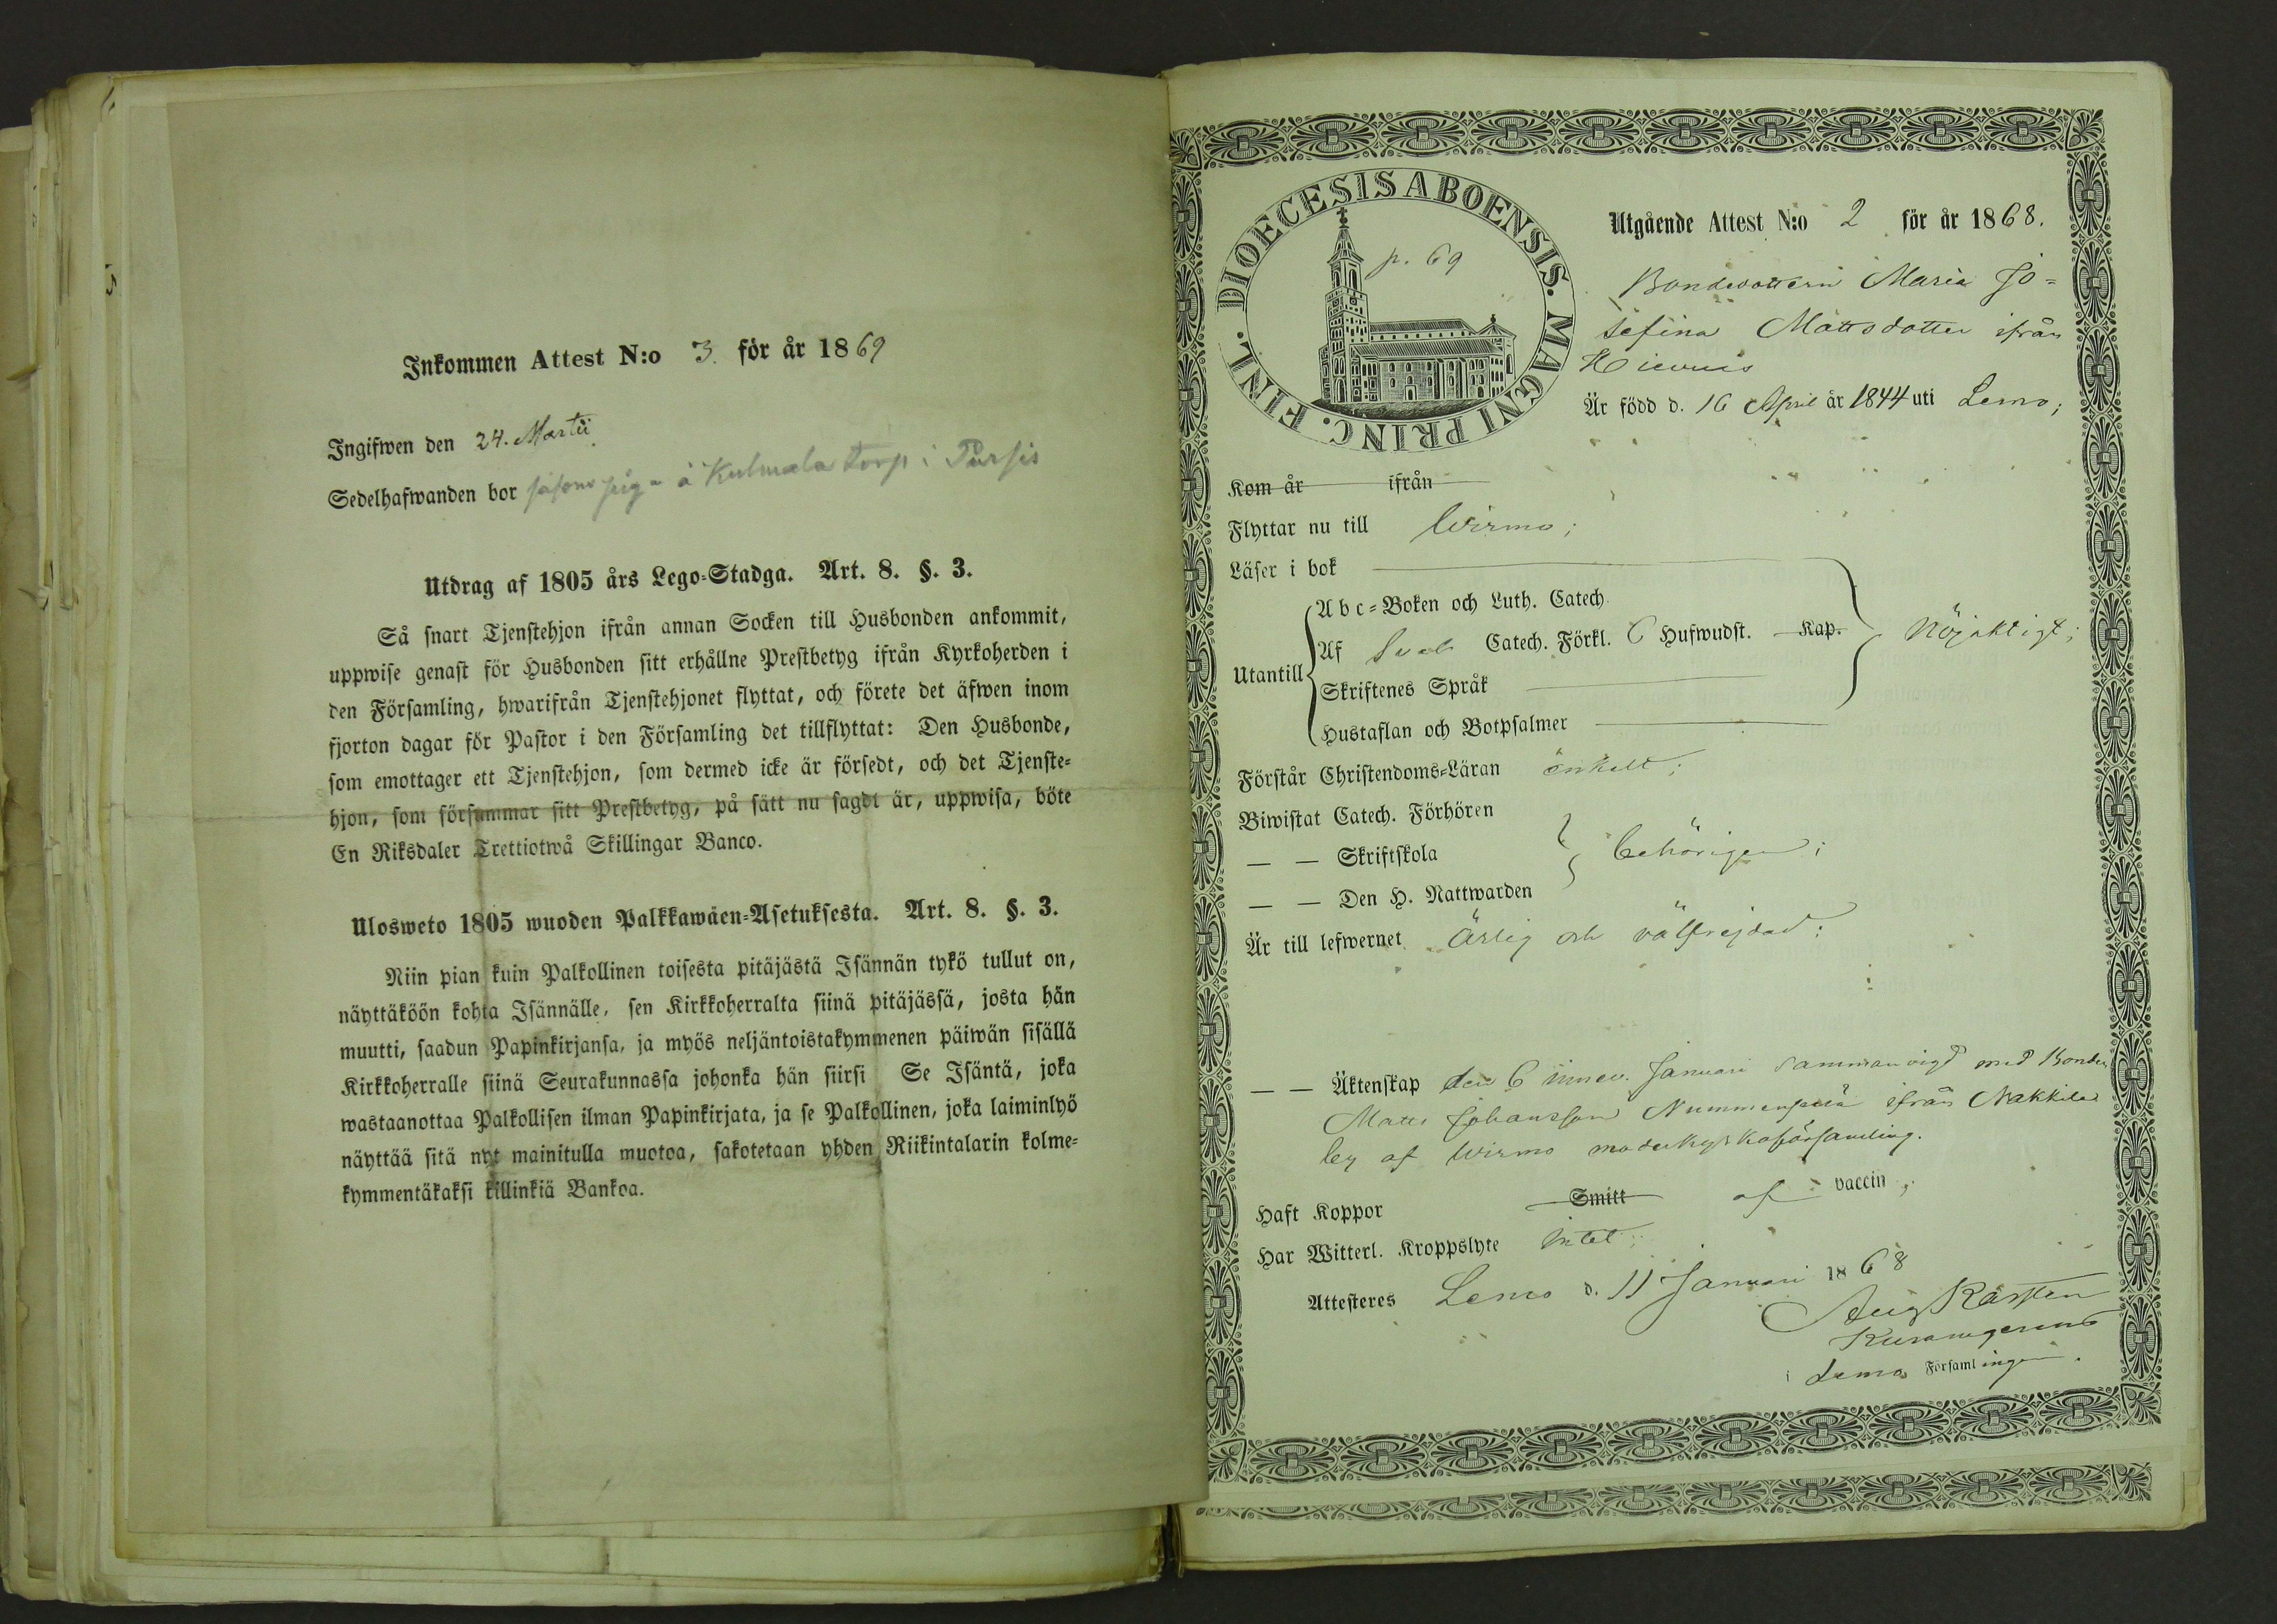 Inkommen Attest N:o 3. för år 1869
Ingifwen den 24. Martii
Sedelhafwanden bor såsom piga å Kulmala torp i Pursis
Utdrag af 1805 års Lego-Stadga. Art. 8. §. 3.
Så snart Tjenstehjon ifrån annan Socken till Husbonden ankommit,
uppwise genast för Husbonden sitt erhållne Prestbetyg ifrån Kyrkoherden i
den Församling, hwarifrån Tjenstehjonet flyttat, och förete det äfwen inom
fjorton dagar för Pastor i den Församling det tillflyttat: Den Husbonde,
som emottager ett Tjenstehjon, som dermed icke är försedt, och det Tjenste-
hjon, som försummar sitt Prestbetyg, på sätt nu sagdt är, uppwisa, böte
En Riksdaler Trettiotwå Skillingar Banco.
Ulosweto 1805 wuoden Palkkawäen-Asetuksesta. Art. 8. §. 3.
Niin pian kuin Palkollinen toisesta pitäjästä Isännän tykö tullut on,
näyttäköön kohta Isännälle, sen Kirkkoherralta siinä pitäjässä, josta hän
muutti, saadun Papinkirjansa, ja myös neljäntoistakymmenen päiwän sisällä
Kirkkoherralle siinä Seurakunnassa johonka hän siirsi Se Isäntä, joka
wastaanottaa Palkollisen ilman Papinkirjata, ja se Palkollinen, joka laiminlyö
näyttää sitä nyt mainitulla muotoa, sakotetaan yhden Riikintalarin kolme-
kymmentäkaksi killinkiä Bankoa.
DIOECESIS ABOENSIS. MAGNI PRINC. FINL.
p. 69
Utgående Attest N:o 2 för år 1868.
Bondedottern Maria Jo-
sefina Mattsdotter ifrån
Är född d. 16 April år 1844 uti Lemo;
Kom år ifrån
Flyttar nu till Wirmo;
Läser i bok
Utantill
Abc-Boken och Luth. Catech.
Af Sveb. Catech. Förkl. 6 Hufwudst. Kap.
Skriftenes Språk
Hustaflan och Botpsalmer
Nöjaktigt;
Förstår Christendoms-Läran enkelt;
Biwistat Catech. Förhören
— — Skriftskola
— — Den H. Nattwarden
behörigen;
Är till lefwernet Ärlig och välfrejdad;
— — Äktenskap den 6 innev. Januari sammanvigd med Bonden
Matts Johansson Nummenpää ifrån Nakkila
by af Wirmo moderkyrkoförsamling.
Haft Koppor Smitt af vaccin;
Har Witterl. Kroppslyte intet;
Attesteres Lemo d. 11 Januari 1868
Aug Karsten
i Lemo Församlingen.